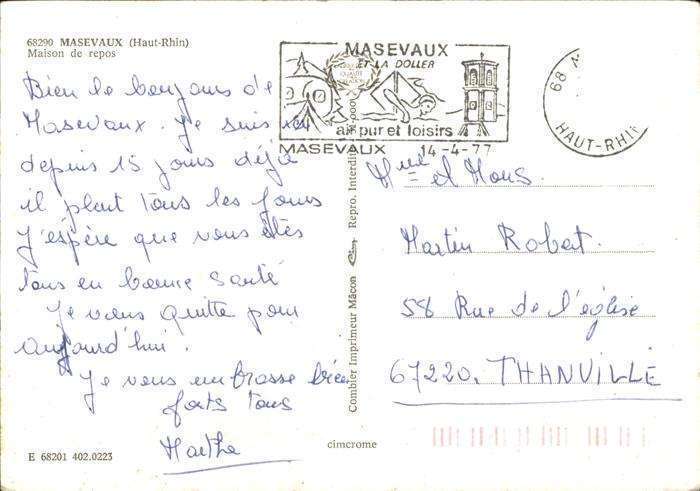 68290 MASEVAUX (Haut-Rhin)
Maison de repos
Bien le bonjour de
Masevaux. Je suis ici
depuis 15 jours déjà
il pleut tous les jours
J'espère que vous êtes
tous en bonne santé
Je vous quitte pour
aujourd'hui.
Je vous embrasse bien
forts tous
Marthe
E 68201 402.0223
MASEVAUX
ET LA DOLLER
air pur et loisirs
MASEVAUX 14-4-77
68
HAUT-RHIN
Combier Imprimeur Mâcon Cim Repro. Interdite
cimcrome
et Mons.
Martin Robert.
58 Rue de l'église
67220. THANVILLE